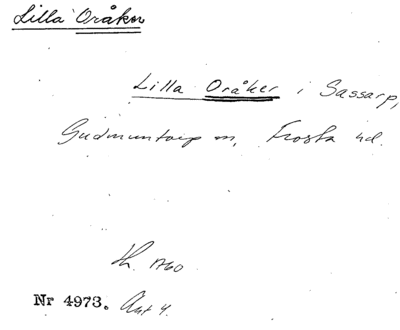 Lilla Oråker
Lilla Oråker i Sassarp,
Gudmuntorp sn, Frosta hd.
Nr 4973. Akt 4.